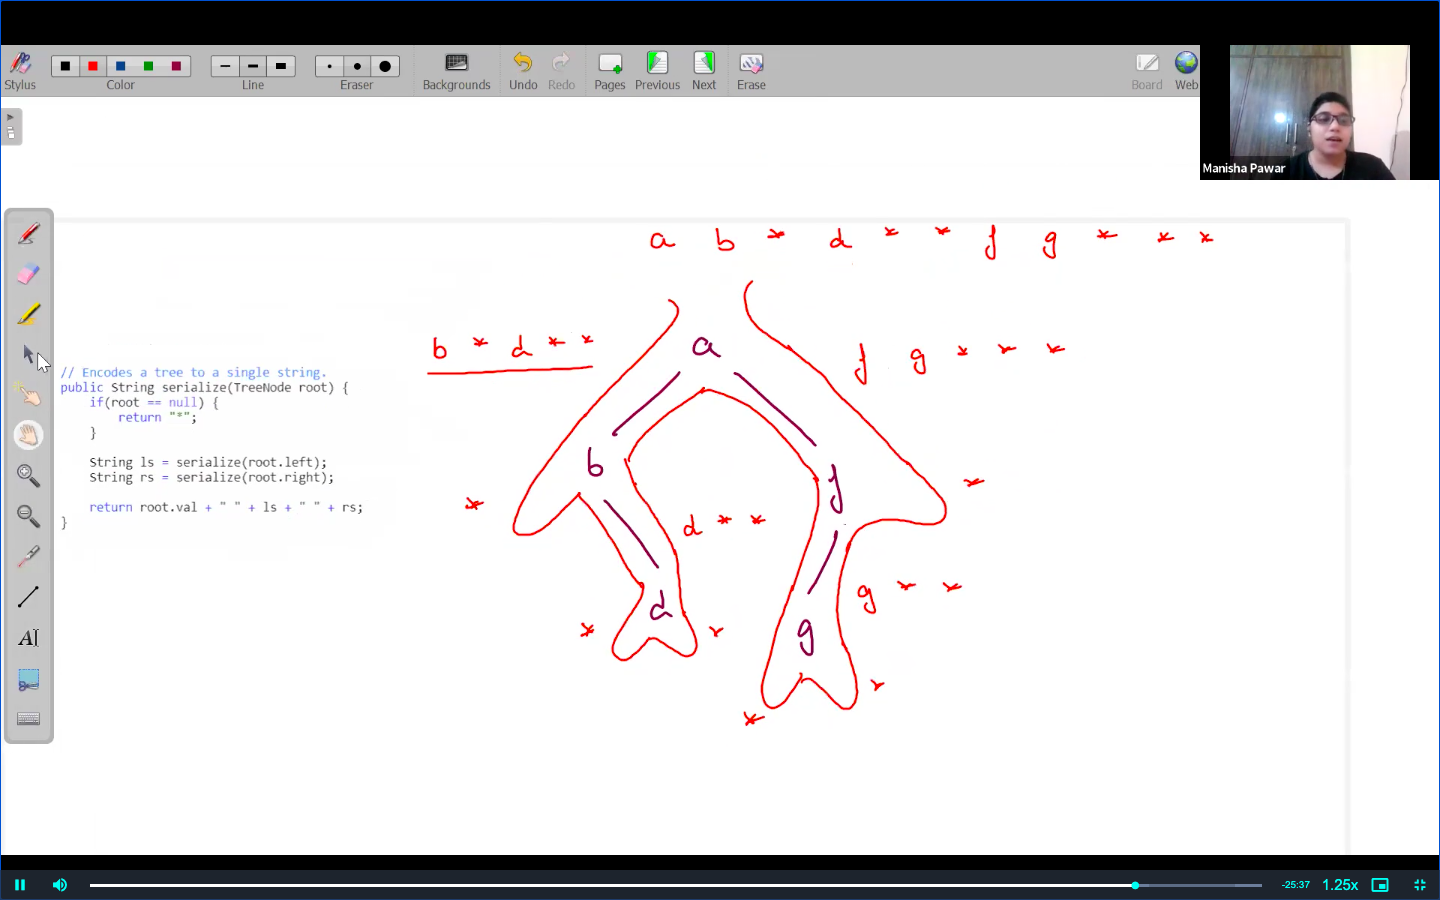 Stylus
Color
Line
Eraser
Backgrounds
Undo
Redo
Pages
Previous
Next
Erase
Board
Web
Manisha Pawar
a b * d * * f g * * *
b * d * *
a
f g * * *
// Encodes a tree to a single string.
public String serialize(TreeNode root) {
if(root == null) {
return "*";
}
String ls = serialize(root.left);
String rs = serialize(root.right);
return root.val + " " + ls + " " + rs;
}
b
f
*
*
d * *
d
g * *
*
*
g
*
*
AI
-25:37
1.25x